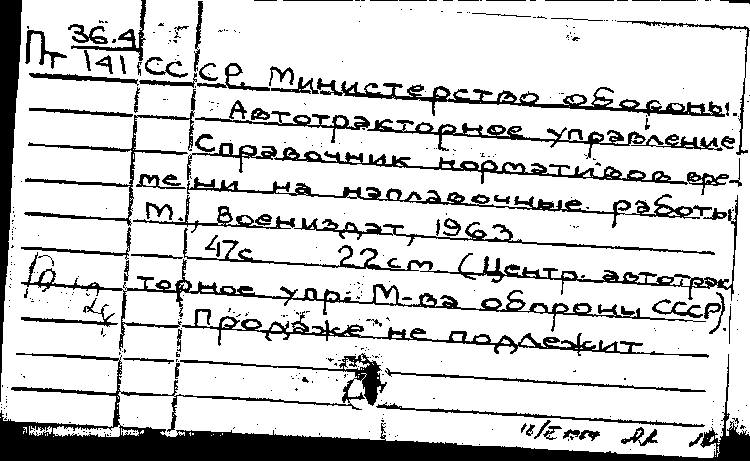 Пт 36.4/141 СССР. Министерство обороны.
Автотракторное управление
Справочник нормативов вре-
мени на наплавочные работы
М., Воениздат, 1963.
47с 22см (Центр. автотрак
торное упр. М-ва обороны СССР).
Продаже не подлежит.